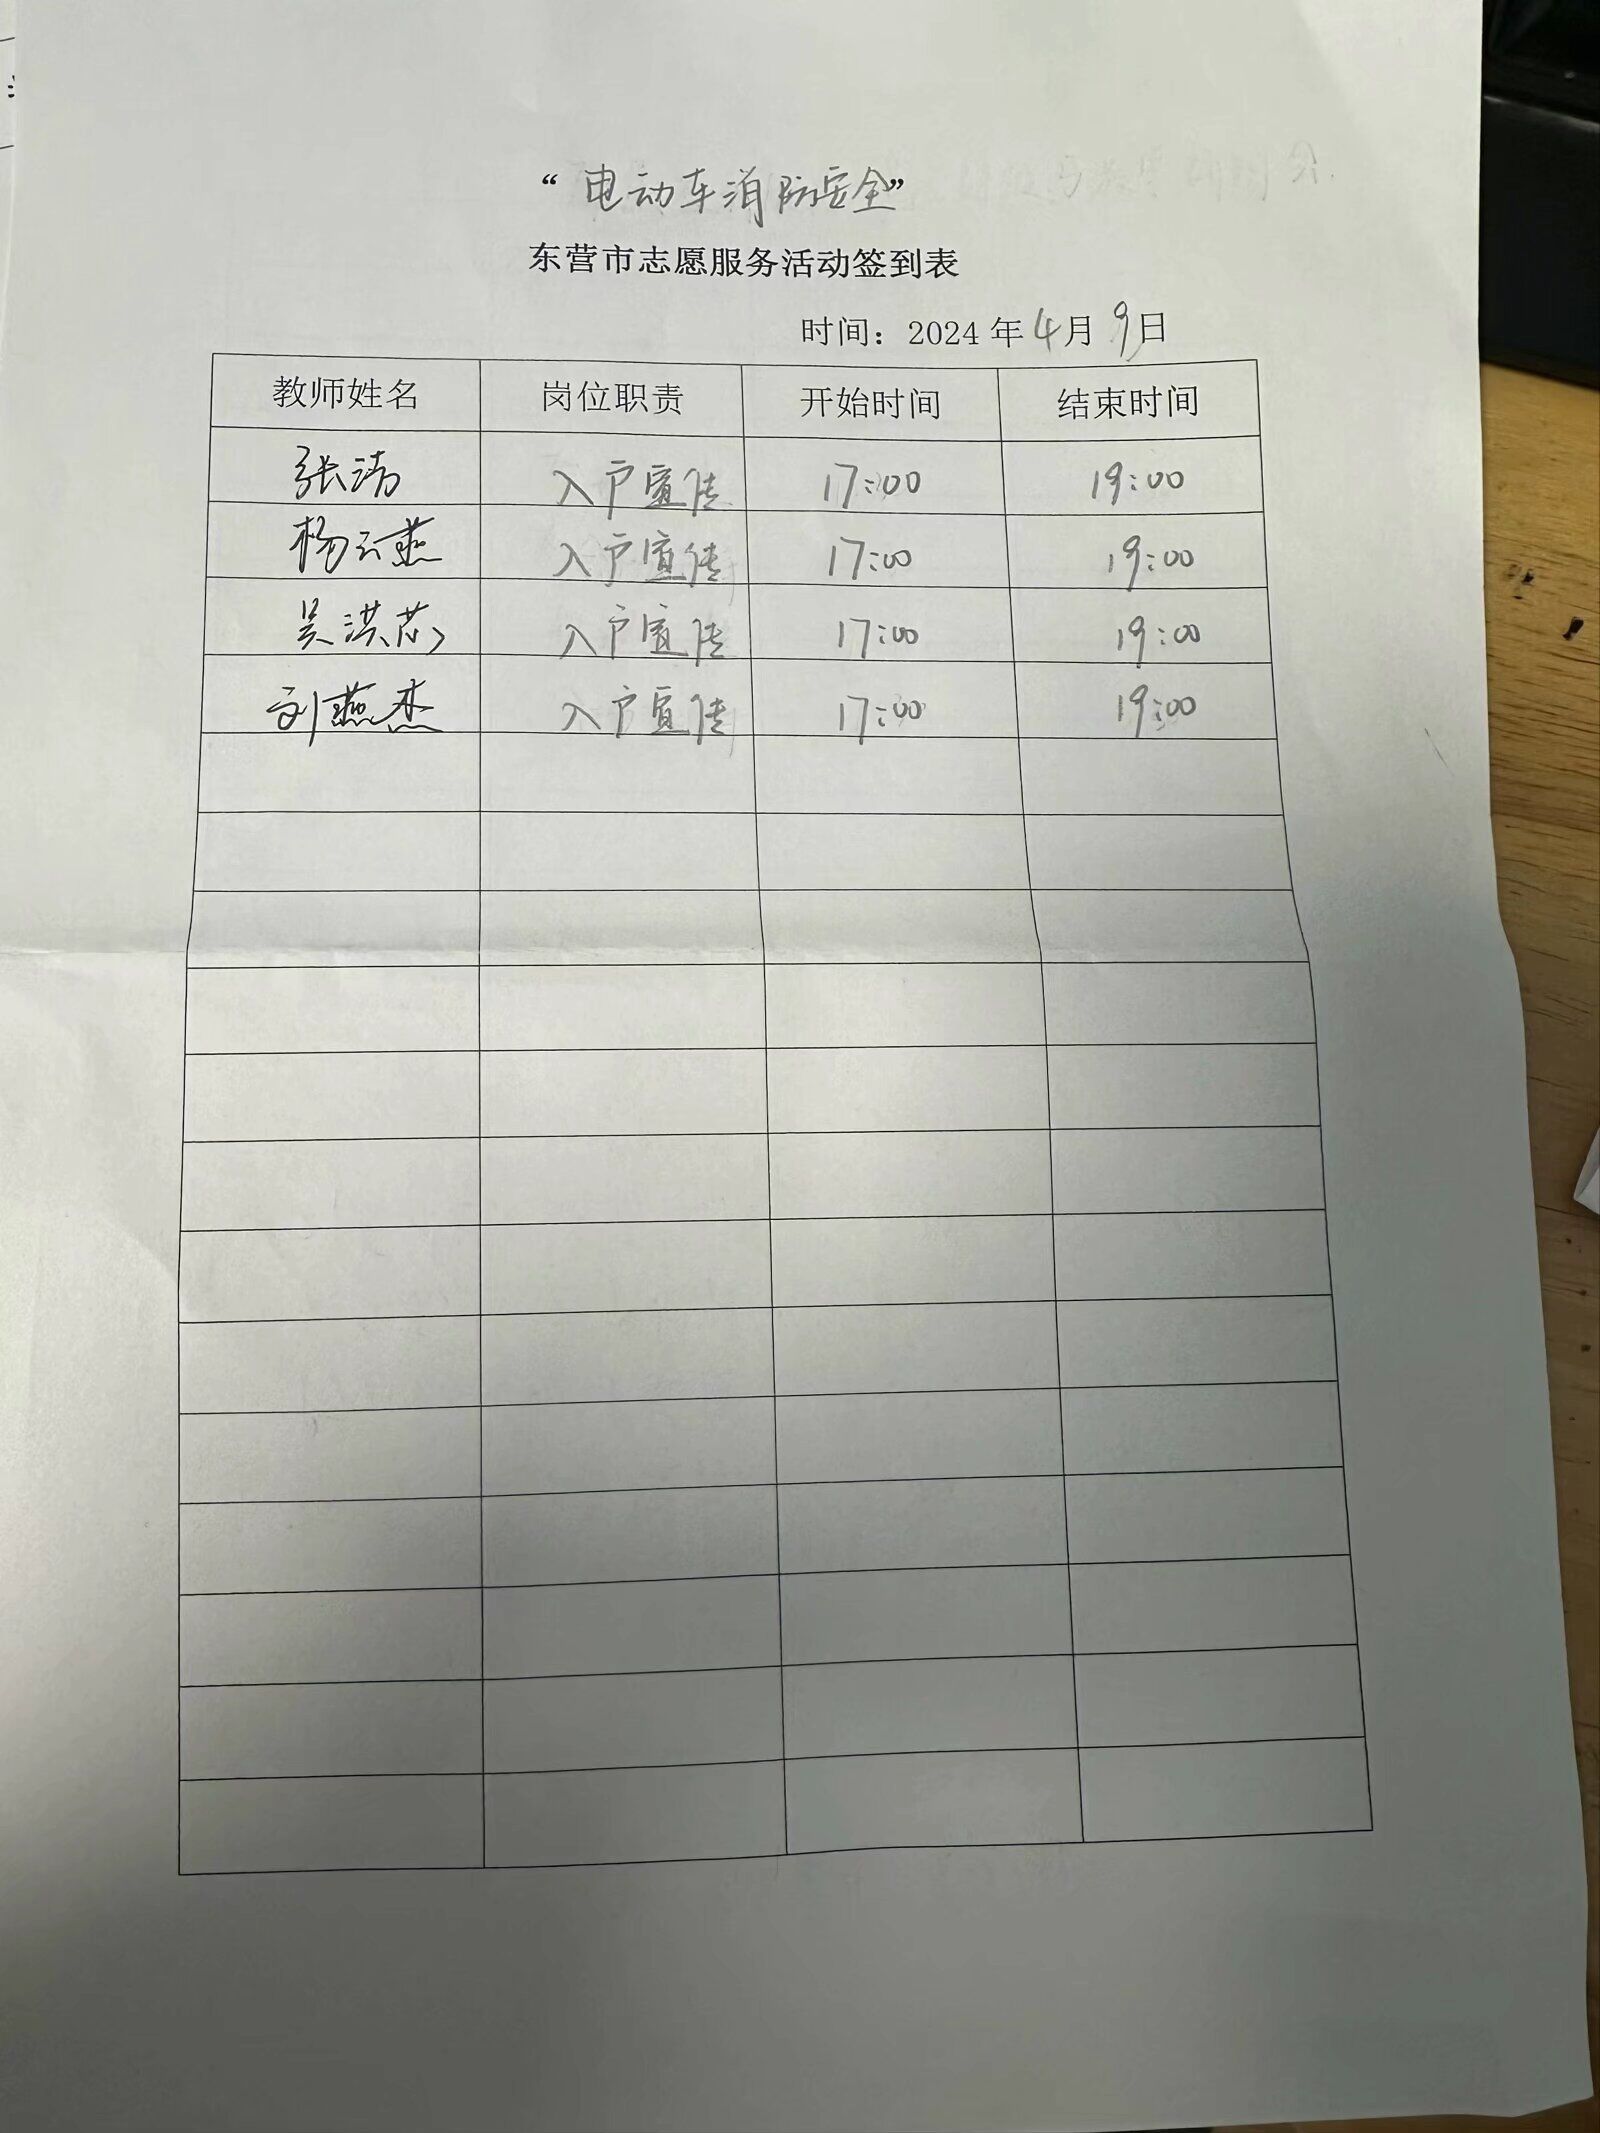 “电动车消防安全”
东营市志愿服务活动签到表
时间：2024年4月9日
教师姓名 岗位职责 开始时间 结束时间
张涛 入户宣传 17:00 19:00
杨云燕 入户宣传 17:00 19:00
吴洪芯 入户宣传 17:00 19:00
刘燕杰 入户宣传 17:00 19:00